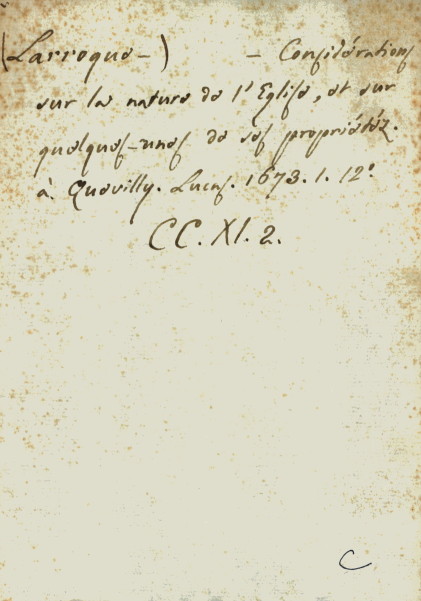 (Larroque—) — Considérations
sur la nature de l'Eglise, et sur
quelques-unes de ses propriétéz.
à Quevilly. Lucas. 1673. 1. 12°
CC. XI. 2.
C